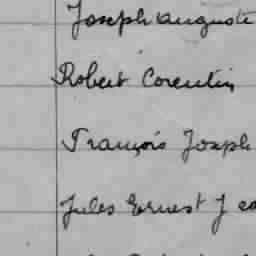 Joseph Auguste
Robert Corentin
François Joseph
Jules Ernest J